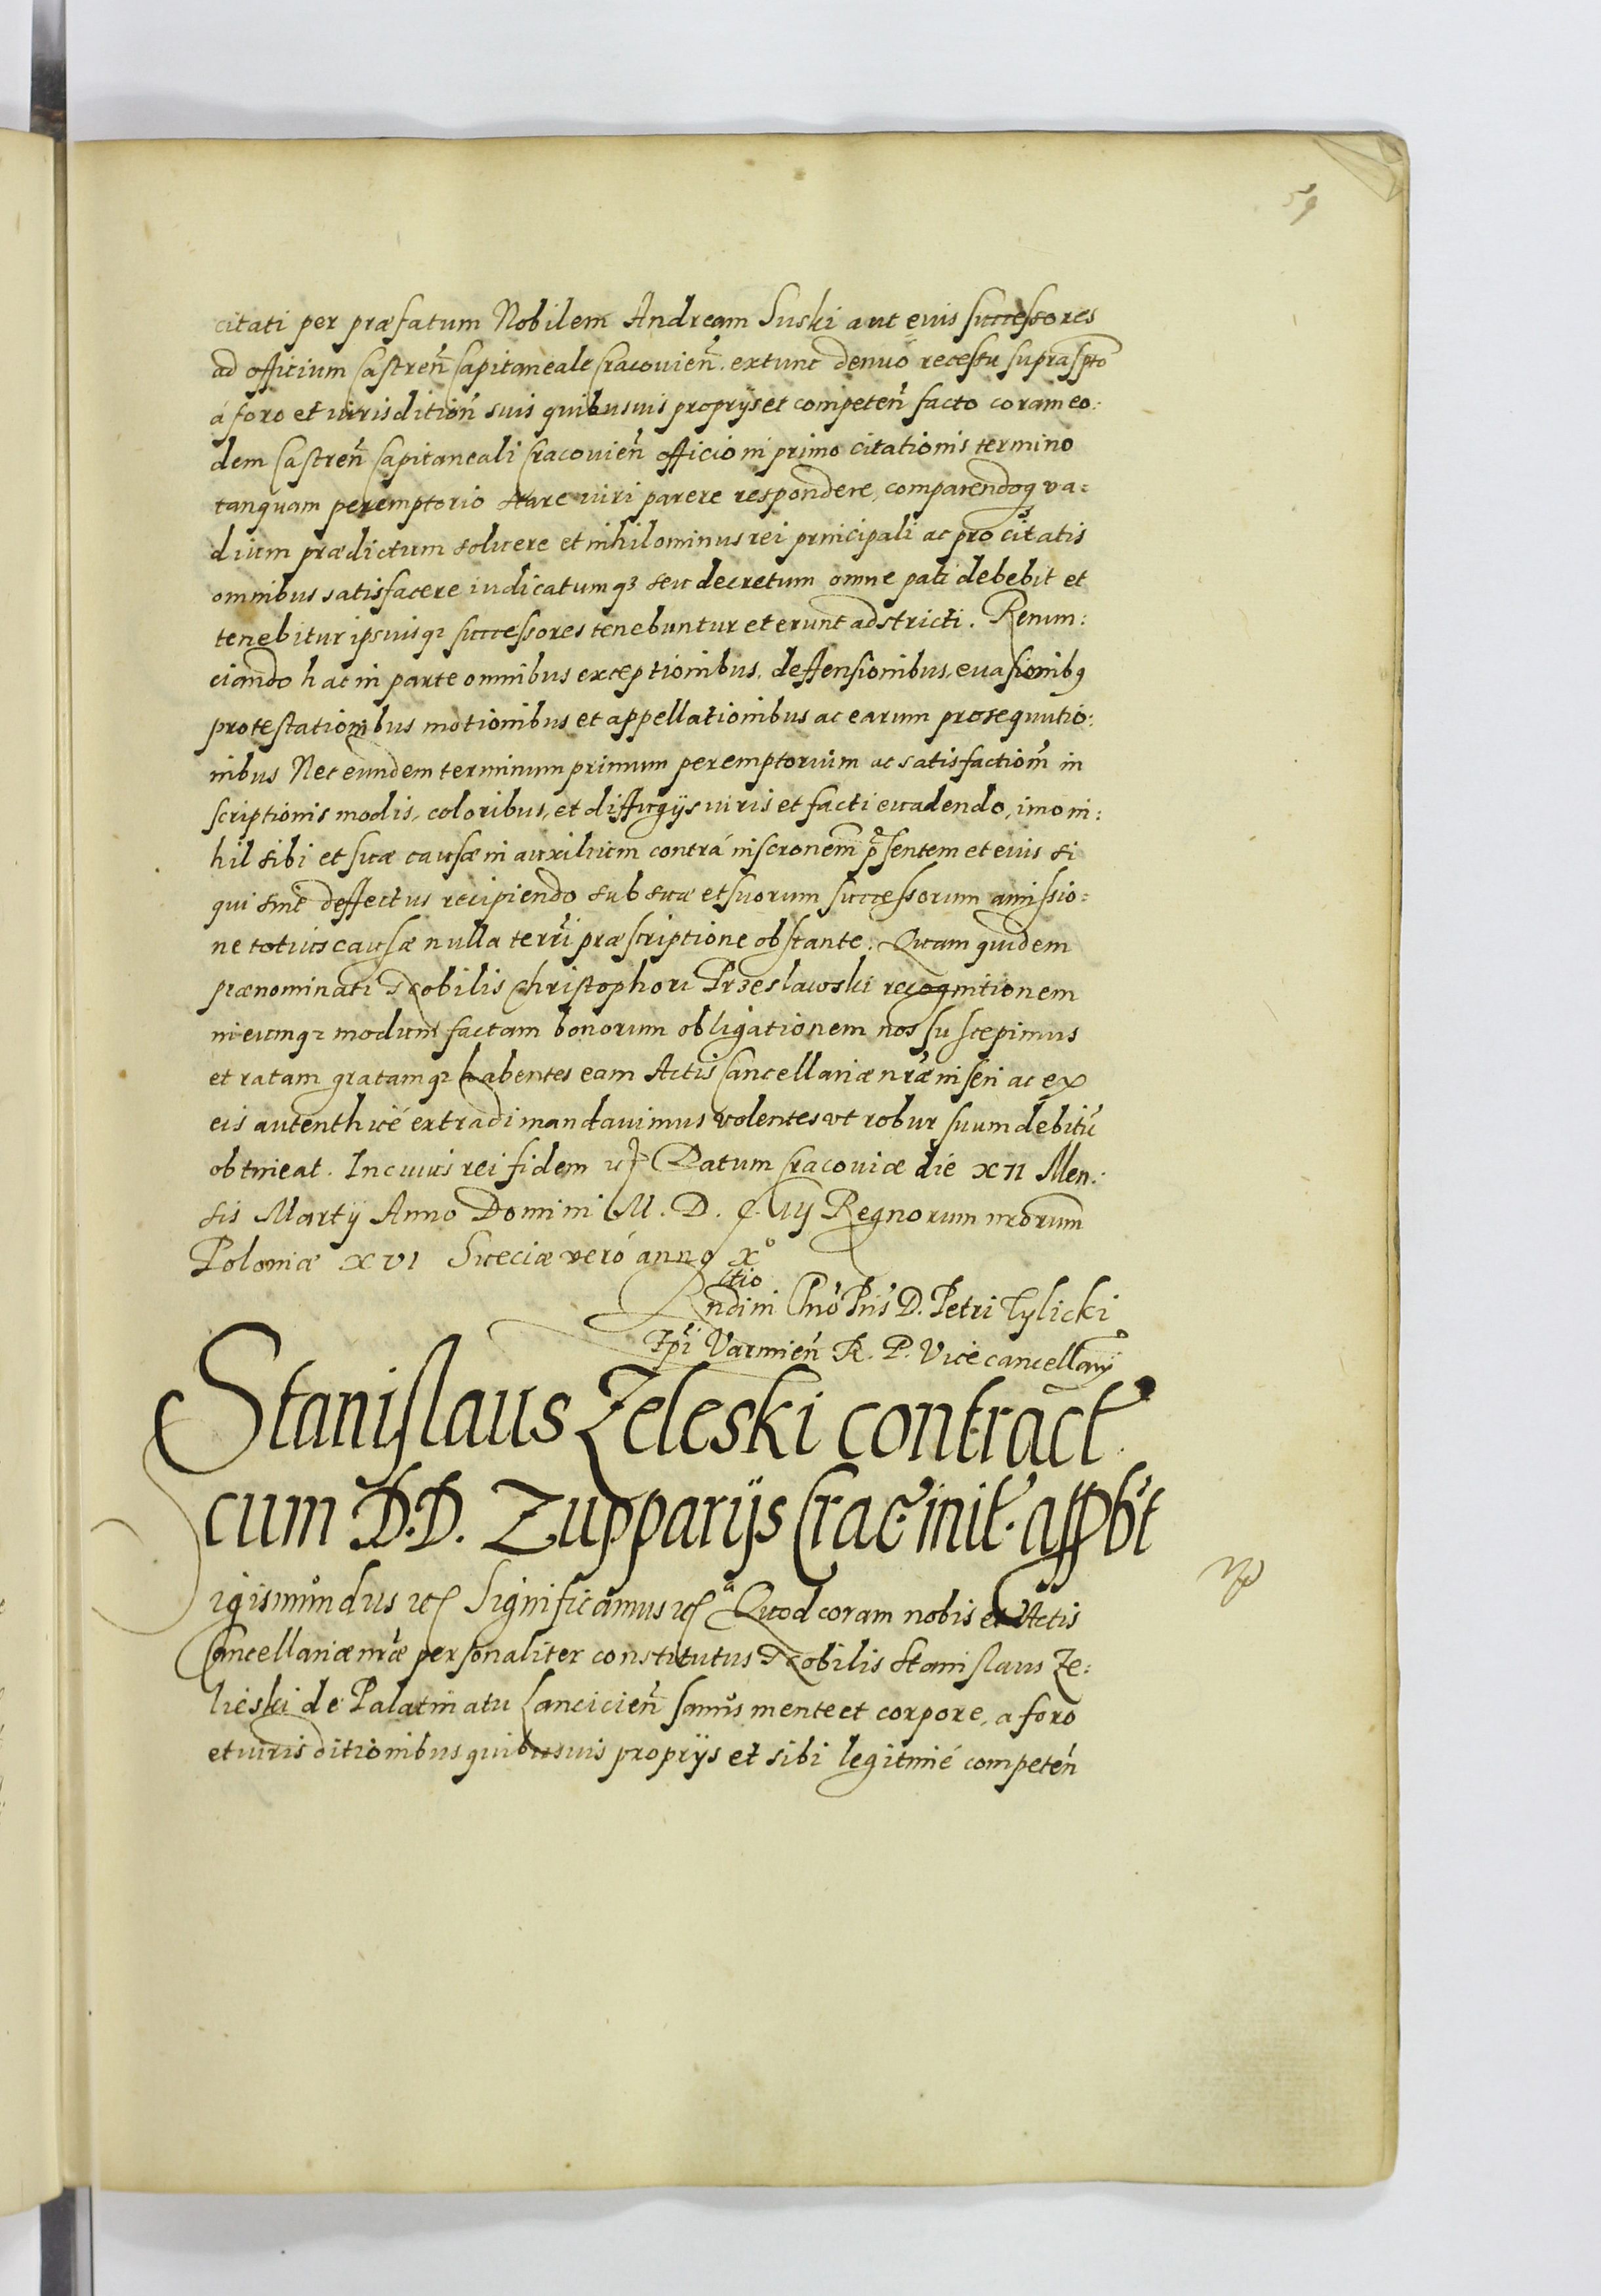 59
citati per præfatum Nobilem Andream Suski aut eius successores
ad officium Castreñ Capitaneale Cracovieñ. extunc denuó recessu suprascpto
á foro et iurisdictioñ suis quibusuis proprijs et competeñ facto coram eo:
dem Castreñ Capitaneali Cracovieñ officio in primo citationis termino
tanquam peremptorio stare iuri parere respondere, comparendoq va=
dium prædictum soluere et nihilominus rei principali ac pro citatis
omnibus satisfacere iudicatumq3 seu decretum omne pati debebit et
tenebitur ipsuisq3 successores tenebuntur et erunt adstricti. Renun:
ciando hac in parte omnibus exceptionibus, deffensionibus, euasionibq
protestationibus motionibus et appellationibus ac earum prosequutio:
nibus Nec eundem terminum primum peremptorium ac satisfactioñ in
scriptionis modis, coloribus, et diffugijs iuris et facti euadendo, imo ni:
hil sibi et suæ causæ in auxilium contrá inscronem psentem et eius si
qui sint deffectus recipiendo sub suæ et suorum successorum amissio=
ne totius causæ nulla terri præscriptione obstante. Quam quidem
prænominati Nobilis Christophori Przeslawski recognitionem
ineumq3 modum factam bonorum obligationem nos suscepimus
et ratam gratamq3 habentes eam Actis Cancellariæ nræ inseri ac ex
eis autenthicé extradi mandauimus volentes vt robur suum debitū
obtineat. In cuius rei fidem etc Datum Cracoviæ die XII Men:
sis Martij Anno Domini M. D. C. IIIj Regnorum nrorum
Poloniæ XVI Sueciæ veró anno Xº
Rndini Chro Pris D. Petri Tylicki
Epi Varmieñ R. P. Vicecancellarij
ctio
Stanislaus Zeleski contract
cum D.D. Zupparijs Crac init. appbt
Sigismundus etc Significamus etc Quod coram nobis et Actis
Cancellariæ nræ personaliter constitutus Nobilis Stanislaus Ze:
lieski de Palatinatu Lancicieñ sanus mente et corpore, a foro
et iurisditionibus quibusuis proprijs et sibi legitimé competeñ